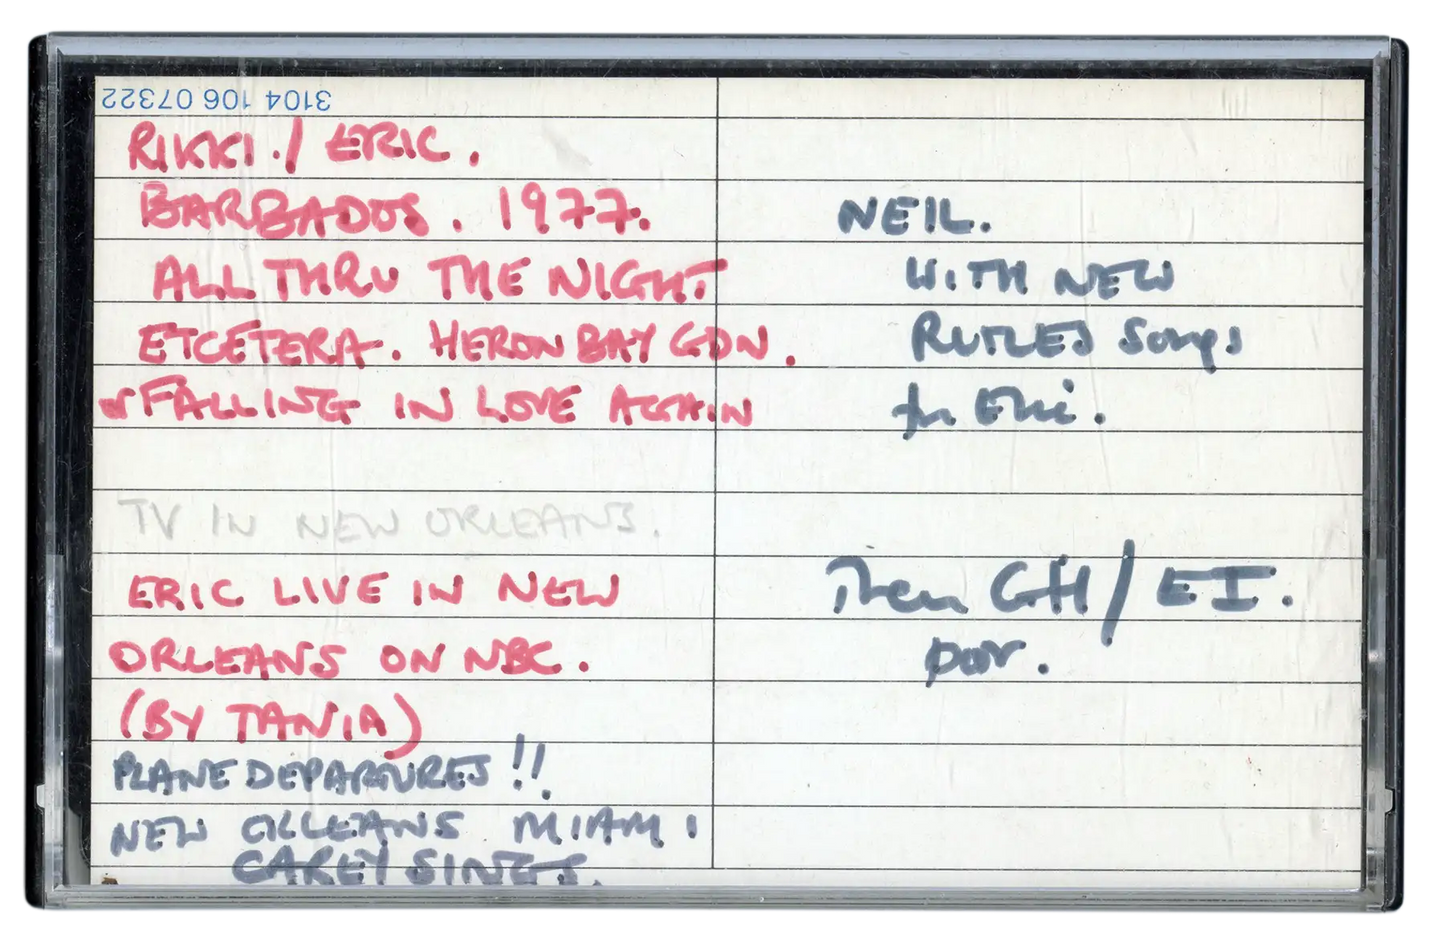 3104 106 07322
RIKKI./ ERIC.
BARBADOS. 1977.
ALL THRU THE NIGHT
ETCETERA. HERON BAY GDN.
FALLING IN LOVE AGAIN
TV IN NEW ORLEANS.
ERIC LIVE IN NEW
ORLEANS ON NBC.
(BY TANIA)
PLANE DEPARTURES!!
NEW ORLEANS MIAMI
CAREY SINGS.
NEIL.
WITH NEW
RUTLES Songs
for Eric.
Then GH/EI.